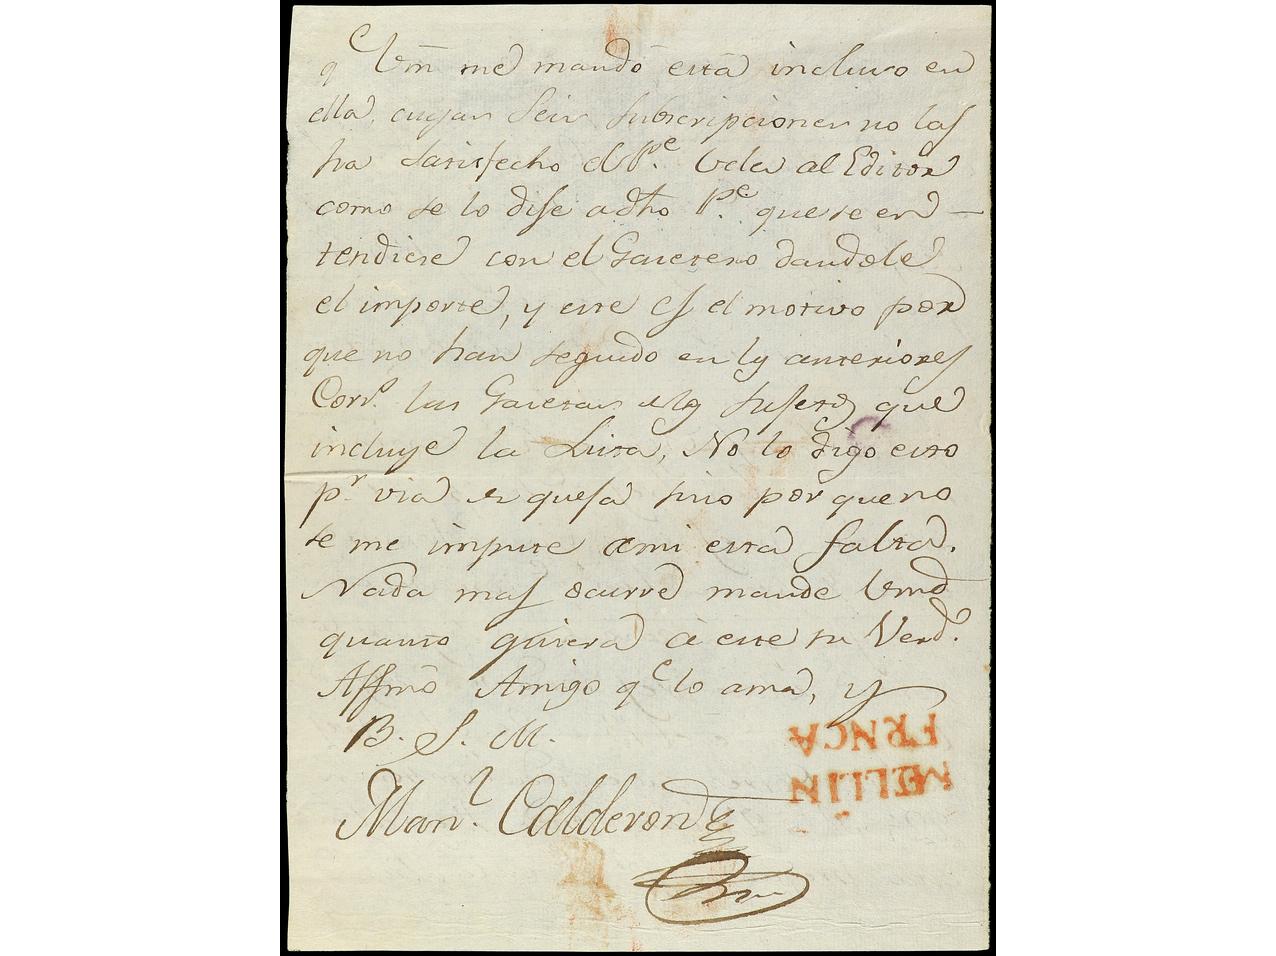 qe Vm me mandó esta incluso en
ella, cuyas seis subscripciones no las
ha satisfecho el Pe. Vela al Editor
como se lo dise a dho Pe. que se en
tendiese con el Gasetero dandole
el importe, y este es el motivo por
que no han seguido en los anteriores
Corrs. las Gasetas de los sujetos que
incluye la Lista, No lo digo esto
pr. via de quesa sino por que no
se me impute a mi esta falta.
Nada mas ocurre mande Vmd
quanto quiera á este su Verd.
Affmo Amigo qe lo ama, y
B. S. M.
Manl. Calderon
MELLIN
FRNCA